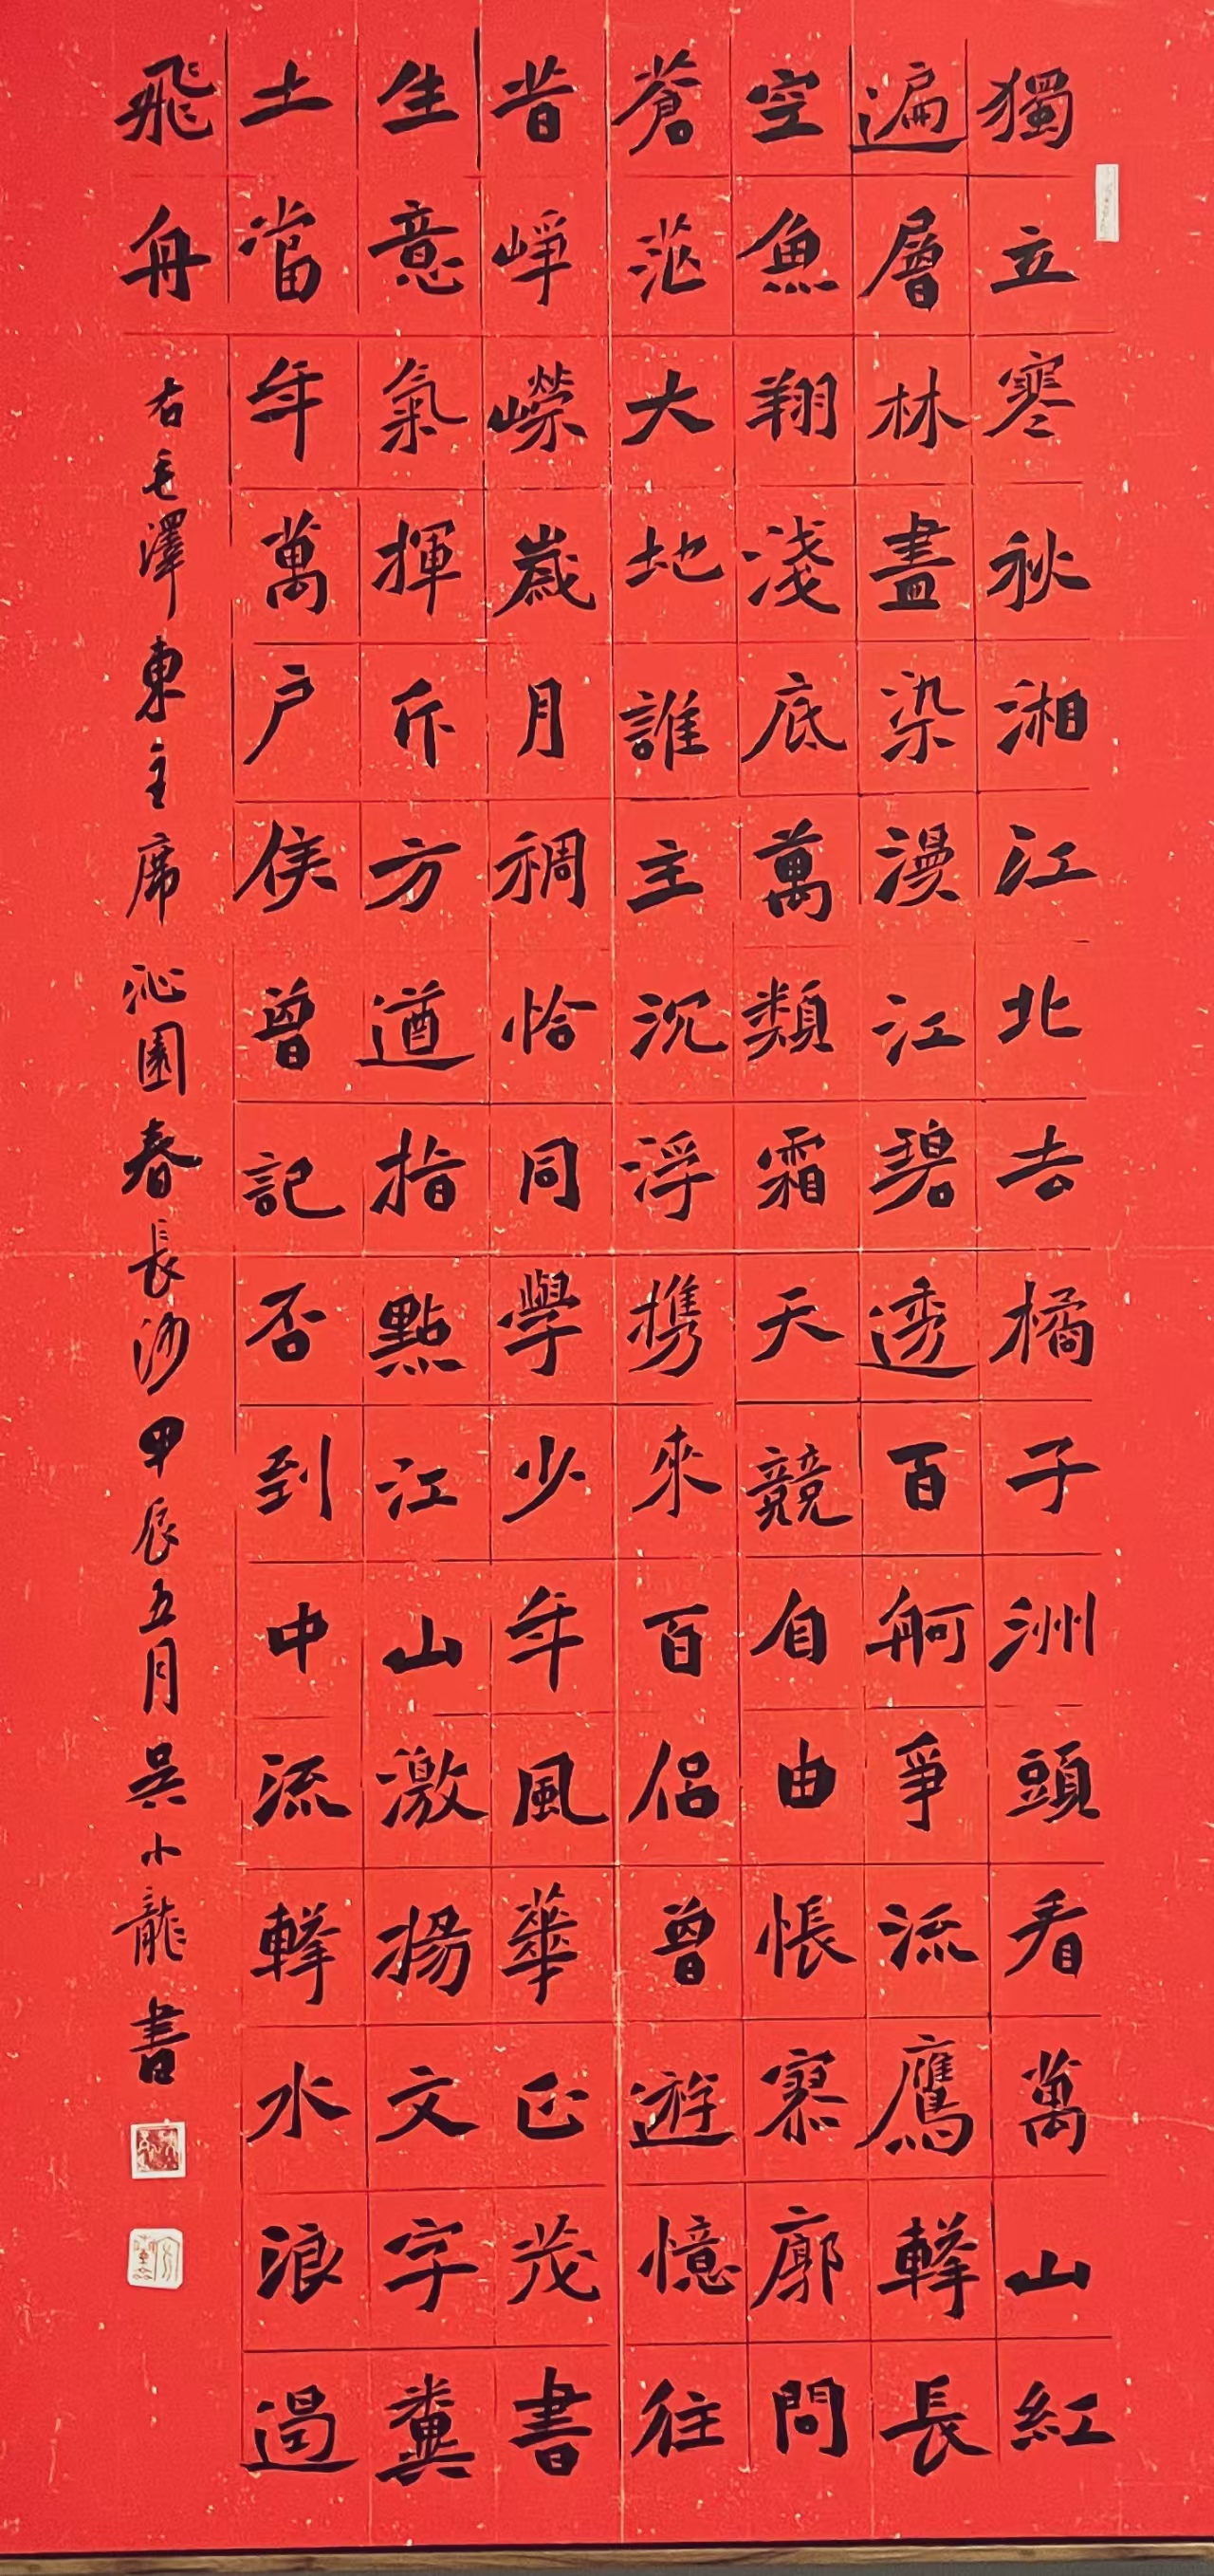 獨立寒秋湘江北去橘子洲頭看萬山紅
遍層林盡染漫江碧透百舸爭流鷹擊長
空魚翔淺底萬類霜天競自由悵寥廓問
蒼茫大地誰主沉浮携來百侶曾遊憶往
昔崢嶸歲月稠恰同學少年風華正茂書
生意氣揮斥方遒指點江山激揚文字糞
土當年萬户侯曾記否到中流擊水浪遏
飛舟 右毛澤東主席沁園春長沙甲辰五月吳小龍書